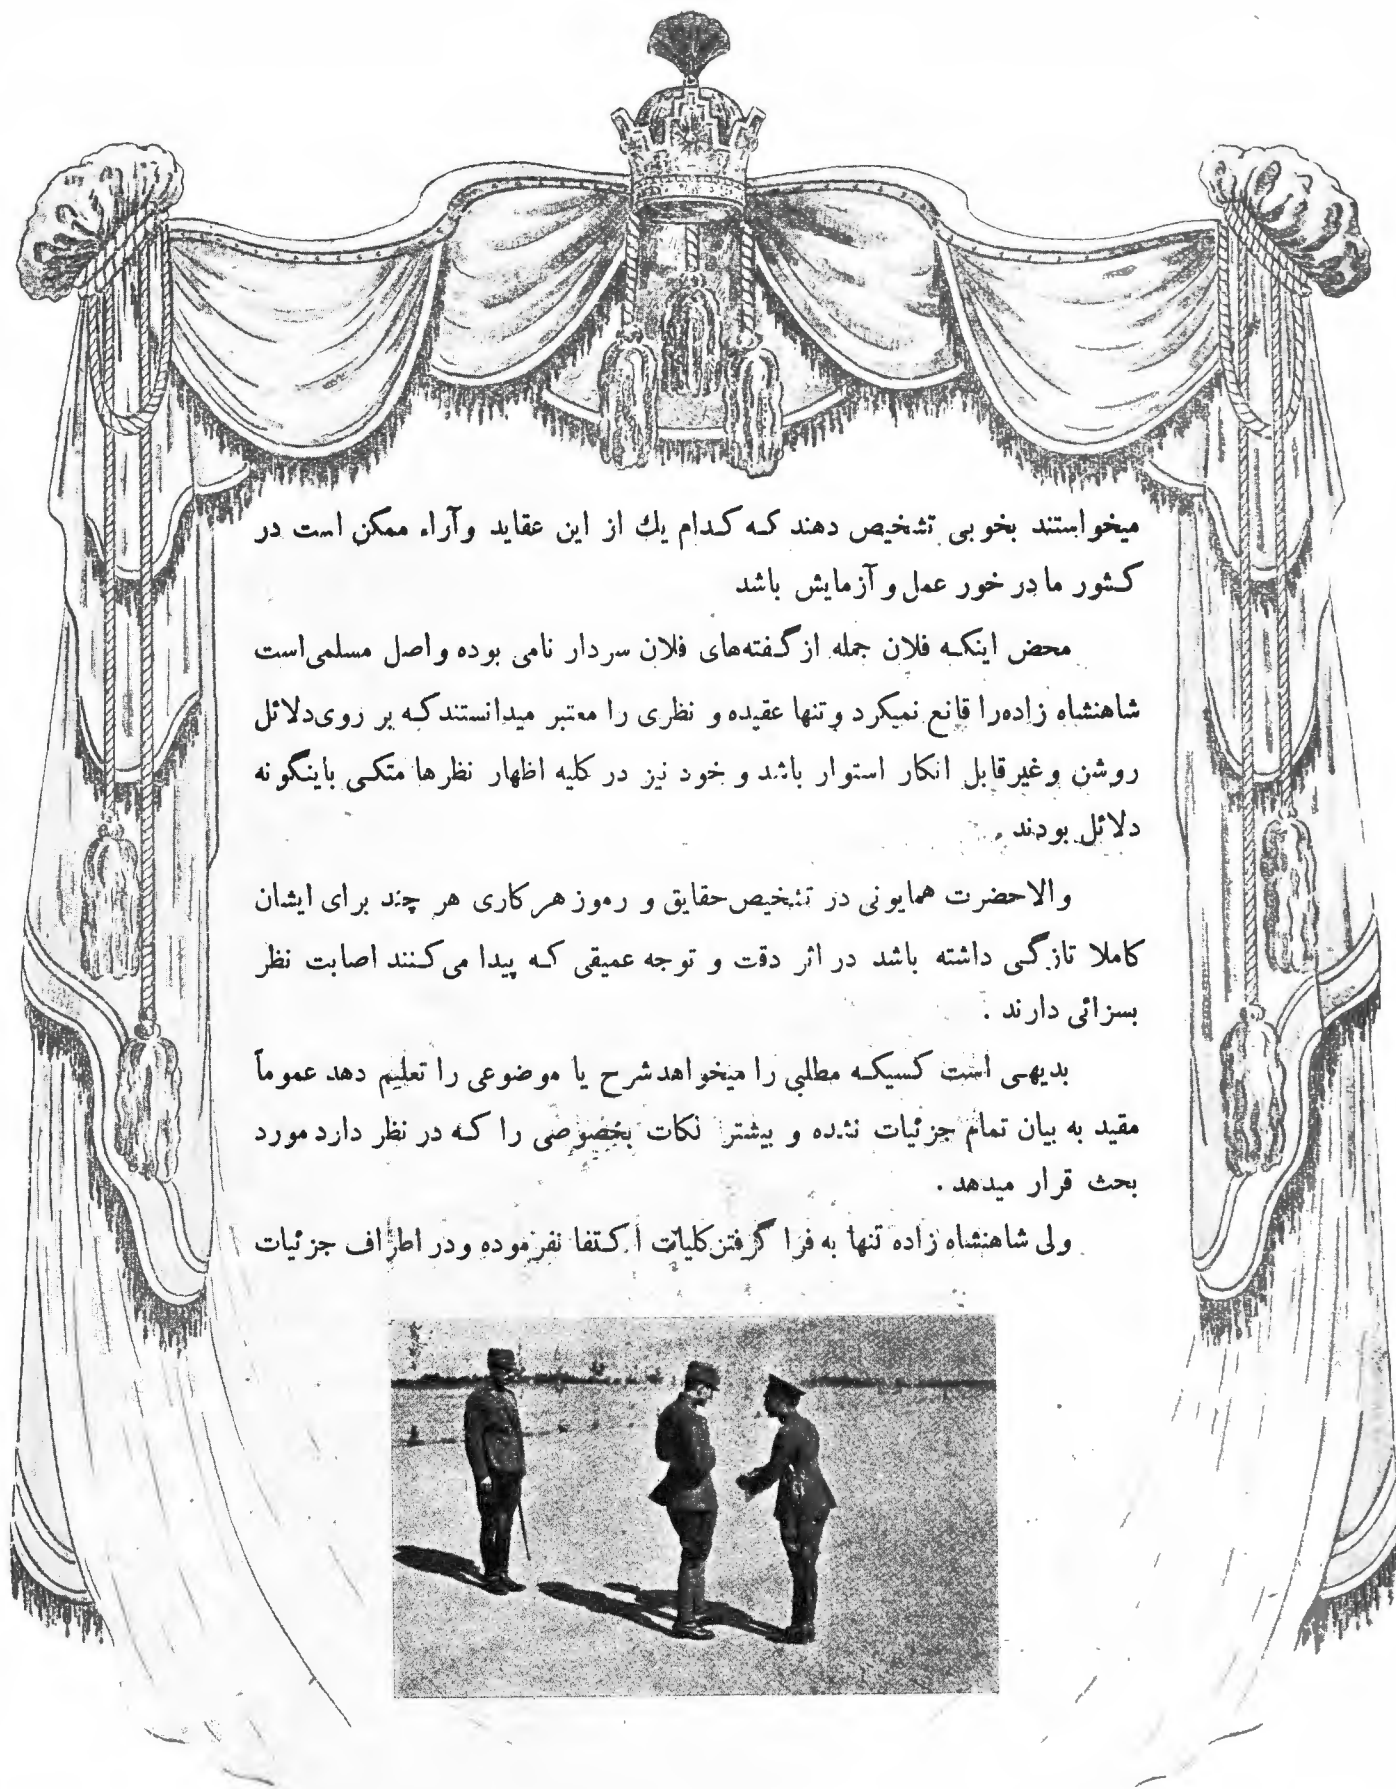 میخواستند بخوبی تشخیص دهند که کدام یك از این عقاید وآراء ممکن است در
کشور ما در خور عمل و آزمایش باشد
محض اینکه فلان جمله از گفته‌های فلان سردار نامی بوده و اصل مسلمی است
شاهنشاه زاده را قانع نمیکرد و تنها عقیده و نظری را معتبر میدانستند که بر روی دلائل
روشن و غیر قابل انکار استوار باشد و خود نیز در کلیه اظهار نظرها متکی باینگونه
دلائل بودند .
والاحضرت همایونی در تشخیص حقایق و رموز هر کاری هر چند برای ایشان
کاملا تازگی داشته باشد در اثر دقت و توجه عمیقی که پیدا می‌کنند اصابت نظر
بسزائی دارند .
بدیهی است کسیکه مطلبی را میخواهد شرح یا موضوعی را تعلیم دهد عموماً
مقید به بیان تمام جزئیات نشده و بیشتر نکات بخصوصی را که در نظر دارد مورد
بحث قرار میدهد .
ولی شاهنشاه زاده تنها به فرا گرفتن کلیات اکتفا نفرموده و در اطراف جزئیات